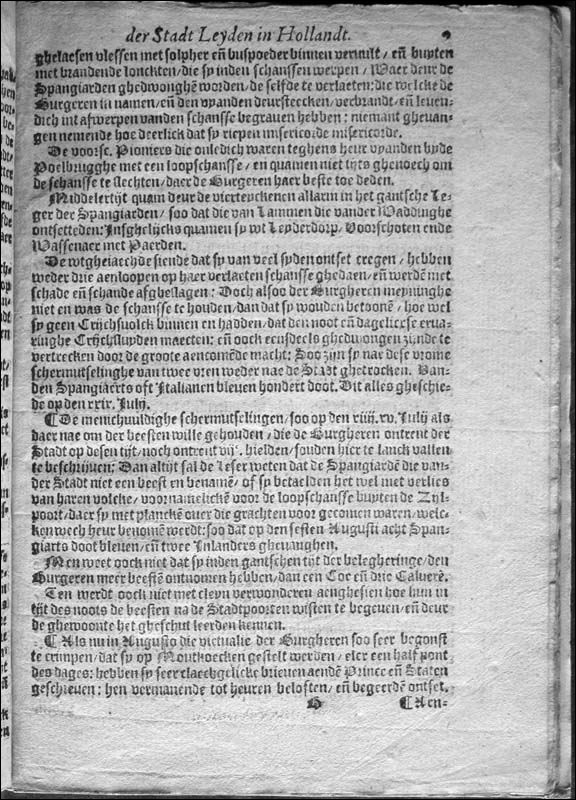 der Stadt Leyden in Hollandt.
ghelaesen vlessen met solpher eñ buspoeder binnen vervult / eñ buyten
met brandende lonckten / die sy inden schanssen werpen / Waer deur de
Spangiarden ghedwonghē worden / de selfde te verlaetē: die welcke de
Burgeren in namen / eñ den vyanden deursteecken / verbrandt / eñ leuen-
dich int afwerpen vanden schansse begrauen hebben: niemant gheuan-
gen nemende hoe deerlick dat sy riepen misericorde misericorde.
De voorsc. Pioniers die onledich waren teghens heur vyanden byde
Poelbrugghe met een loopschansse / en quamen niet tijts ghenoech om
de schansse te slechten / daer de Burgeren haer beste toe deden.
Middelertijt quam deur de vierteyckenen allarm in het gantsche Le-
ger der Spangiarden / soo dat die van Lammen die vander Waddinghe
ontsetteden: Insghelijcks quamen sy wt Leyderdorp / Voorschoten ende
Wassenaer met Paerden.
De wtgheiaechde siende dat sy van veel syden ontset cregen / hebben
weder drie aenloopen op haer verlaeten schansse ghedaen / eñ werdē met
schade eñ schande afgheslagen: Doch alsoo der Burgheren meyninghe
niet en was de schansse te houden / dan dat sy wouden betoonē / hoe wel
sy geen Crijchsuolck binnen en hadden / dat den noot eñ dagelicxse erua-
ringhe Crijchsluyden maecten: eñ oock eensdeels ghedwongen zijnde te
vertrecken door de groote aencomēde macht: Soo zijn sy nae dese vrome
schermutselinghe van twee vren weder nae de Stadt ghetrocken. Van-
den Spangiaerts oft Italianen bleuen hondert doot. Dit alles gheschie-
de op den xxix. Julij.
¶ De menichvuldighe schermutselingen / soo op den xiiij. xv. Julij als
daer nae om der beesten wille gehouden / die de Burgheren ontrent der
Stadt op desen tijt / noch ontrent vijᶜ. hielden / souden hier te lanck vallen
te beschrijuen: Dan altijt sal de Leser weten dat de Spangiardē die van-
der Stadt niet een beest en benamē / of sy betaelden het wel met verlies
van haren volcke / voornamelickē voor de loopschansse buyten de Zyl-
poort / daer sy met planckē ouer die grachten voor gecomen waren / welc-
ken wech heur benomē werdt: soo dat op den sesten Augusti acht Span-
giarts doot bleuen / eñ twee Inlanders gheuanghen.
Men weet oock niet dat sy inden gantschen tijt der belegheringe / den
Burgeren meer beestē ontnomen hebben / dan een Coe eñ drie Calverē.
Ten werdt oock niet met cleyn verwonderen aenghesien hoe hun in
tijt des noots de beesten na de Stadtpoorten wisten te begeuen / eñ deur
de ghewoonte het gheschut leerden kennen.
¶ Als nu in Augusto die victualie der Burgheren soo seer begonst
te crimpen / dat sy op Moutkoecken gestelt werden / elcr een half pont
des dages: hebben sy seer claechgelicke brieuen aendē Prince eñ Staten
geschreuen: hen vermanende tot heuren beloften / eñ begeerdē ontset.
¶ Aen-